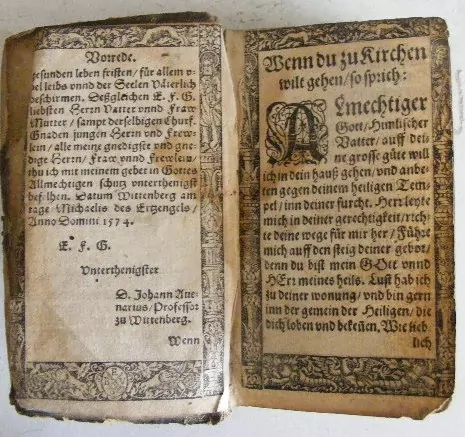 Vorrede.
gesunden leben fristen / für allem v-
bel leibs vnnd der Seelen Väterlich
beschirmen. Deßgleichen E. F. G.
liebsten Herrn Vatter vnnd Fraw
Mutter / sampt derselbigen Churf.
Gnaden jungen Herrn vnd Frew-
lein / alle meine gnedigste vnd gne-
dige Herrn / Fraw vnnd Frewlein /
thu ich mit meinem gebet in Gottes
Allmechtigen schutz vnterthenigst
befehlhen. Datum Wittenberg am
tage Michaelis des Ertzengels /
Anno Domini 1574.
E. F. G.
Vnterthenigster
D. Johann Aue-
narius / Professor
zu Wittenberg.
Wenn
Wenn du zu Kirchen
wilt gehen / so sprich:
ALmechtiger
Gott / Himlischer
Vatter / auff dei-
ne grosse güte will
ich in dein hauß gehen / vnd anbe-
ten gegen deinem heiligen Tem-
pel / inn deiner furcht. Herr leyte
mich in deiner gerechtigkeit / rich-
te deine wege für mir her / Führe
mich auff den steig deiner gebot /
denn du bist mein GOtt vnnd
HErr meines heils. Lust hab ich
zu deiner wonung / vnd bin gern
inn der gemein der Heiligen / die
dich loben vnd bekeñen, Wie lieb-
lich